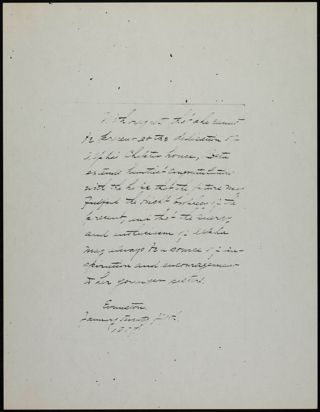 With regret that she cannot
be present at the dedication of
Alpha's chapter house, Beta
extends heartiest congratulations
with the hope that the future may
fulfill the bright of the
present, and that the energy
and enthusiasm of Alpha
may always be a source of in-
spiration and encouragement
to her younger sister.
Evanston
January